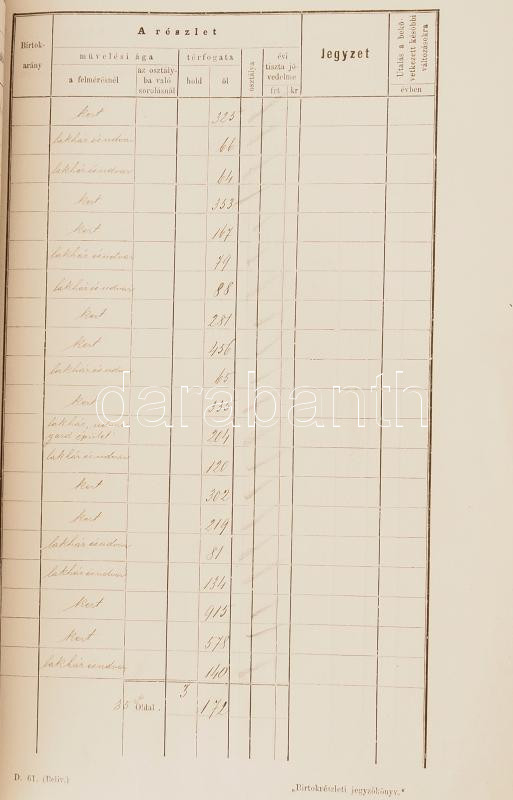 A részlet
Birtok-
arány
művelési ága
térfogata
a felmérésnél
az osztály-
ba való
sorolásnál
hold
öl
osztálya
évi
tiszta jö-
vedelme
frt
kr
Jegyzet
Utalás a bekö-
vetkezett későbbi
változásokra
évben
kert 325
lakház és udvar 66
lakház és udvar 64
kert 353
kert 167
lakház és udvar 79
lakház és udvar 88
kert 281
kert 456
lakház és udv 65
kert 335
lakház, udvar
gazd épület 204
lakház és udvar 120
kert 302
kert 219
lakház és udvar 81
lakház és udvar 134
kert 915
kert 578
lakház és udvar 140
35 Oldal. 3 172
D. 61. (Beliv.)
„Birtokrészleti jegyzőkönyv."
darabanth